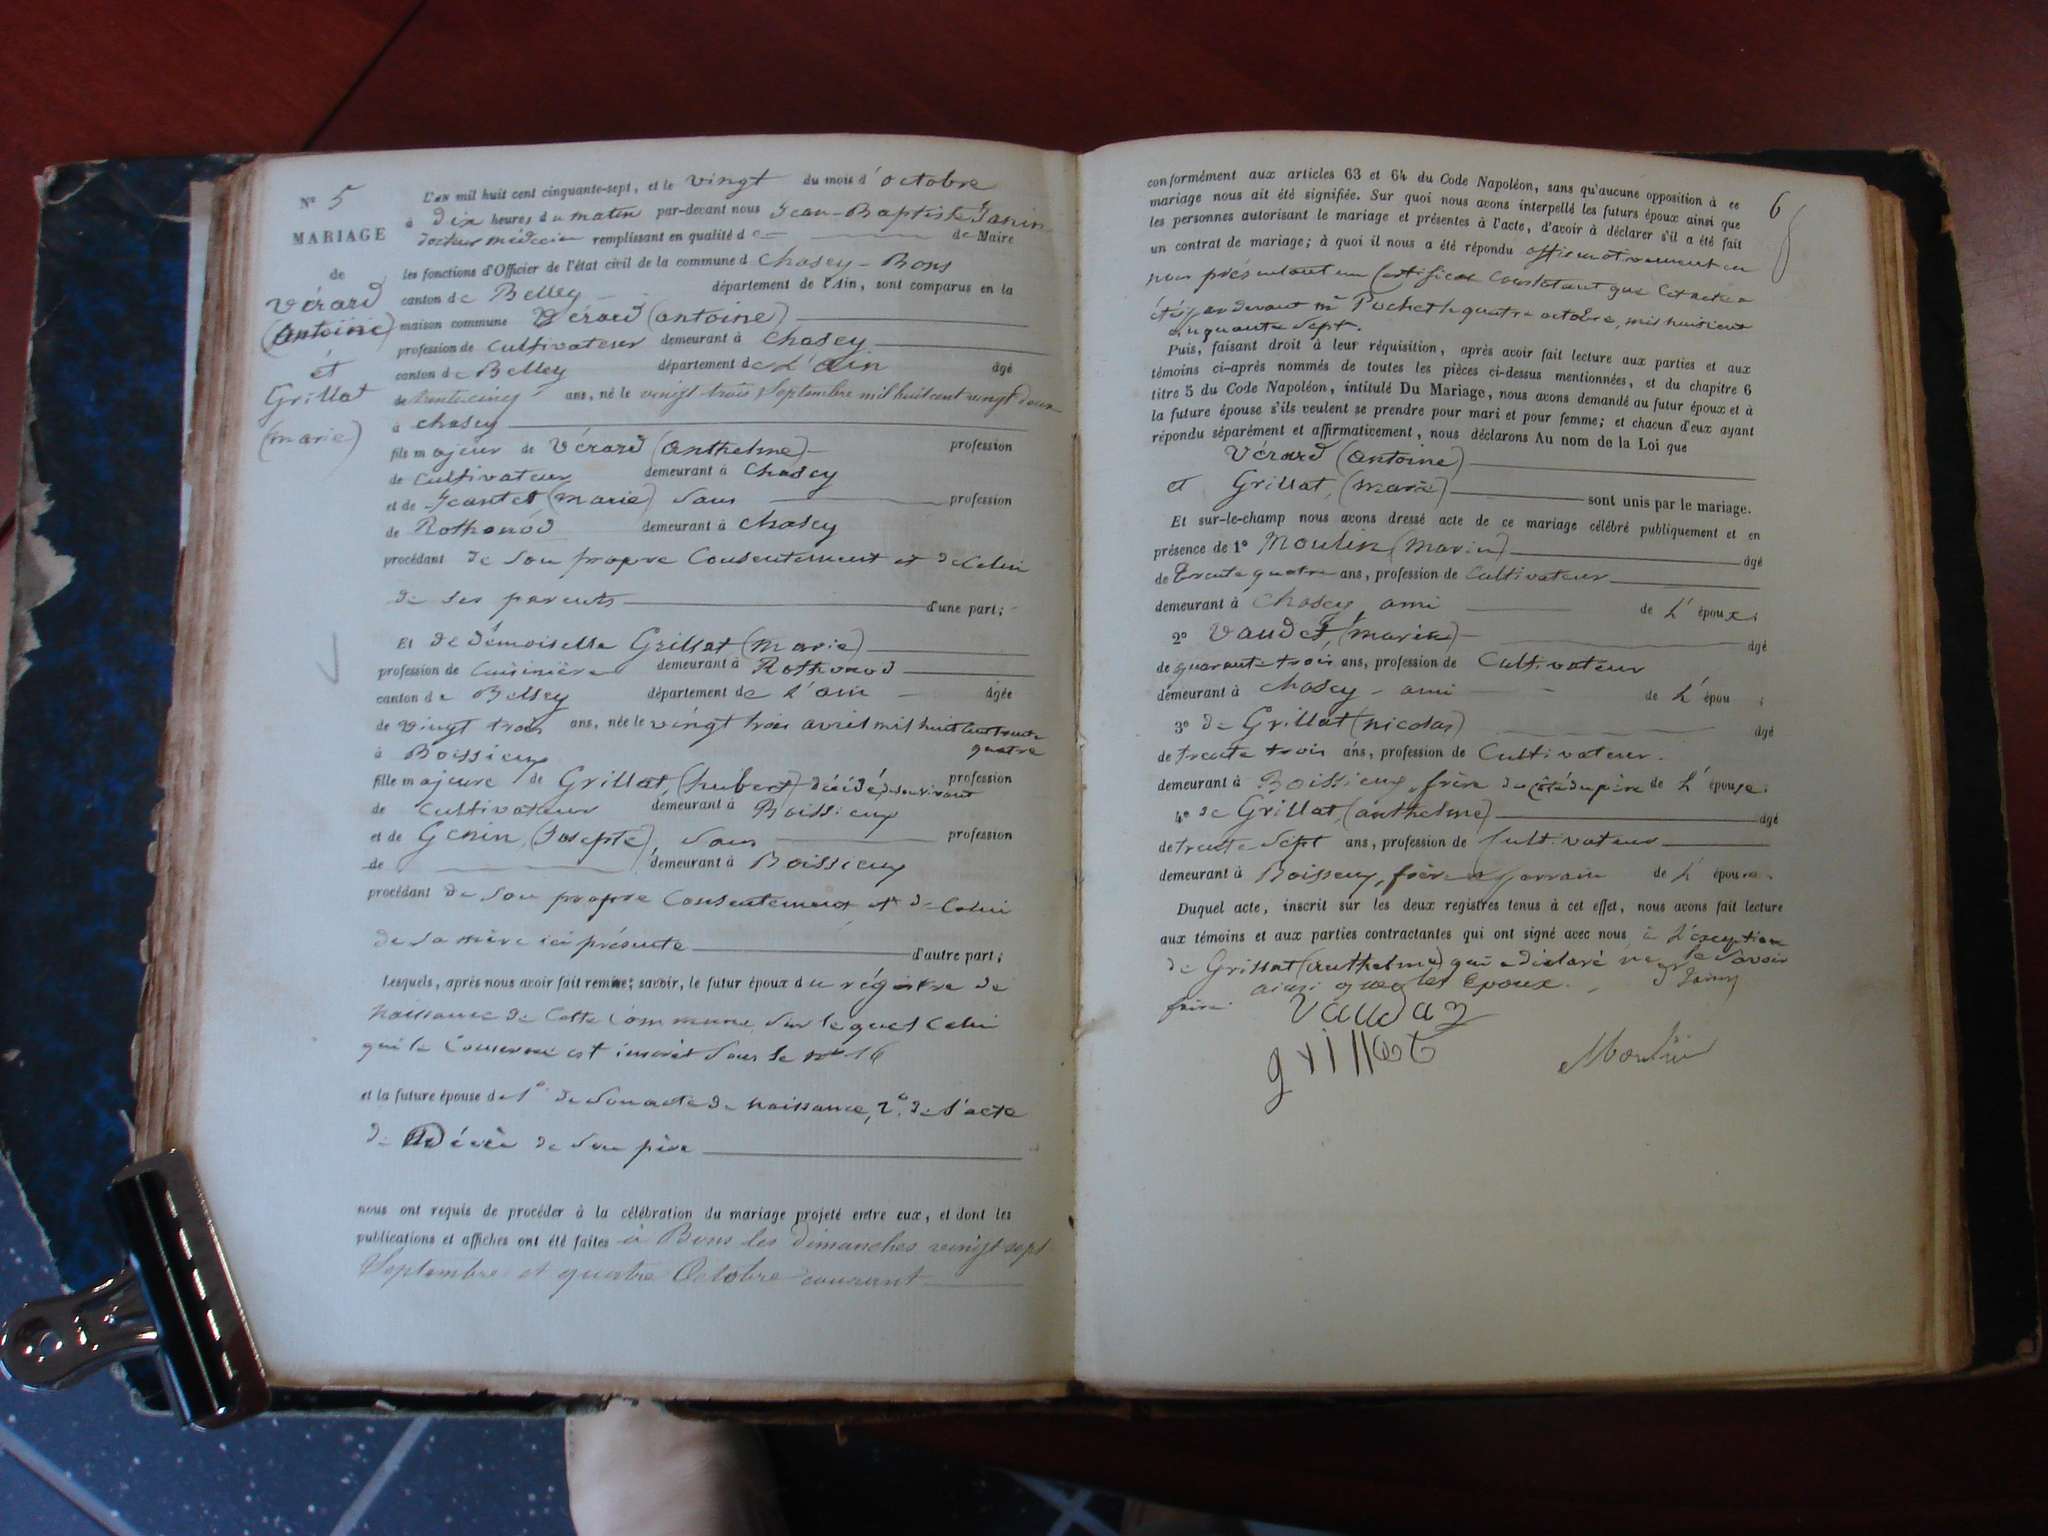 N° 5
MARIAGE
de
Vérard
(Antoine)
et
Grillat
(marie)
L'an mil huit cent cinquante-sept, et le vingt du mois d'octobre
à dix heures du matin par-devant nous Jean-Baptiste Janin
docteur médecin remplissant en qualité de de Maire
les fonctions d'Officier de l'état civil de la commune d Chasey-Bons
canton de Belley département de l'Ain, sont comparus en la
maison commune Vérard (antoine)
profession de cultivateur demeurant à Chasey
canton de Belley département de L'Ain âgé
de trente cinq ans, né le vingt trois Septembre mil huit cent vingt deux
à chasey
fils majeur de Vérard (Anthelme) profession
de cultivateur demeurant à Chasey
et de (marie) sans profession
de Rothonod demeurant à chasey
procédant de son propre Consentement et de Celui
de ses parents d'une part;
Et de démoiselle Grillat (Marie)
profession de Cuisinière demeurant à Rothonod
canton de Belley département de L'ain âgée
de vingt trois ans, née le vingt trois avril mil huit cent trente
quatre
à Boissieux
fille majeure de Grillat, (hubert) décédé, de son vivant profession
de Cultivateur demeurant à Boissieux
et de Genin, (Josepte), Sans profession
de demeurant à Boissieux
procédant de son propre Consentement et de Celui
de sa mère ici présente d'autre part;
Lesquels, après nous avoir fait remise; savoir, le futur époux du régistre de
Naissance de Cette Commune sur lequel Celui
qui le Concerne est inscrit sous le n° 16
et la future épouse de 1° de Son acte de naissance, 2° de l'acte
de Décès de son père
nous ont requis de procéder à la célébration du mariage projeté entre eux, et dont les
publications et affiches ont été faites à Bons les dimanches vingt sept
Septembre et quatre Octobre courant
6
conformément aux articles 63 et 64 du Code Napoléon, sans qu'aucune opposition à ce
mariage nous ait été signifiée. Sur quoi nous avons interpellé les futurs époux ainsi que
les personnes autorisant le mariage et présentes à l'acte, d'avoir à déclarer s'il a été fait
un contrat de mariage; à quoi il nous a été répondu affirmativement en
nous présentant un Certificat Constatant que Cet acte a
été par devant me Pochet le quatre octobre, mil huit cent
cinquante Sept.
Puis, faisant droit à leur réquisition, après avoir fait lecture aux parties et aux
témoins ci-après nommés de toutes les pièces ci-dessus mentionnées, et du chapitre 6
titre 5 du Code Napoléon, intitulé Du Mariage, nous avons demandé au futur époux et à
la future épouse s'ils veulent se prendre pour mari et pour femme; et chacun d'eux ayant
répondu séparément et affirmativement, nous déclarons Au nom de la Loi que
Vérard (Antoine)
et Grillat, (marie) sont unis par le mariage.
Et sur-le-champ nous avons dressé acte de ce mariage célébré publiquement et en
présence de 1° Moulin (Marin) âgé
de Trente quatre ans, profession de Cultivateur
demeurant à Chasey, ami de L'époux;
2° Vaudet, (marin) âgé
de quarante trois ans, profession de Cultivateur
demeurant à Chasey - ami de L'épou ;
3° de Grillat (nicolas) âgé
de trente trois ans, profession de Cultivateur.
demeurant à Boissieux, frère du côté du père de L'épouse;
4° de Grillat, (anthelme) âgé
de trente Sept ans, profession de Cultivateur
demeurant à Boisseux, frère de L'épouse.
Duquel acte, inscrit sur les deux registres tenus à cet effet, nous avons fait lecture
aux témoins et aux parties contractantes qui ont signé avec nous à L'exception
de Grillat (Anthelme) qui a déclaré ne le Savoir
faire ainsi que les Epoux. Janin
Vaudaz
grillat
Moulin